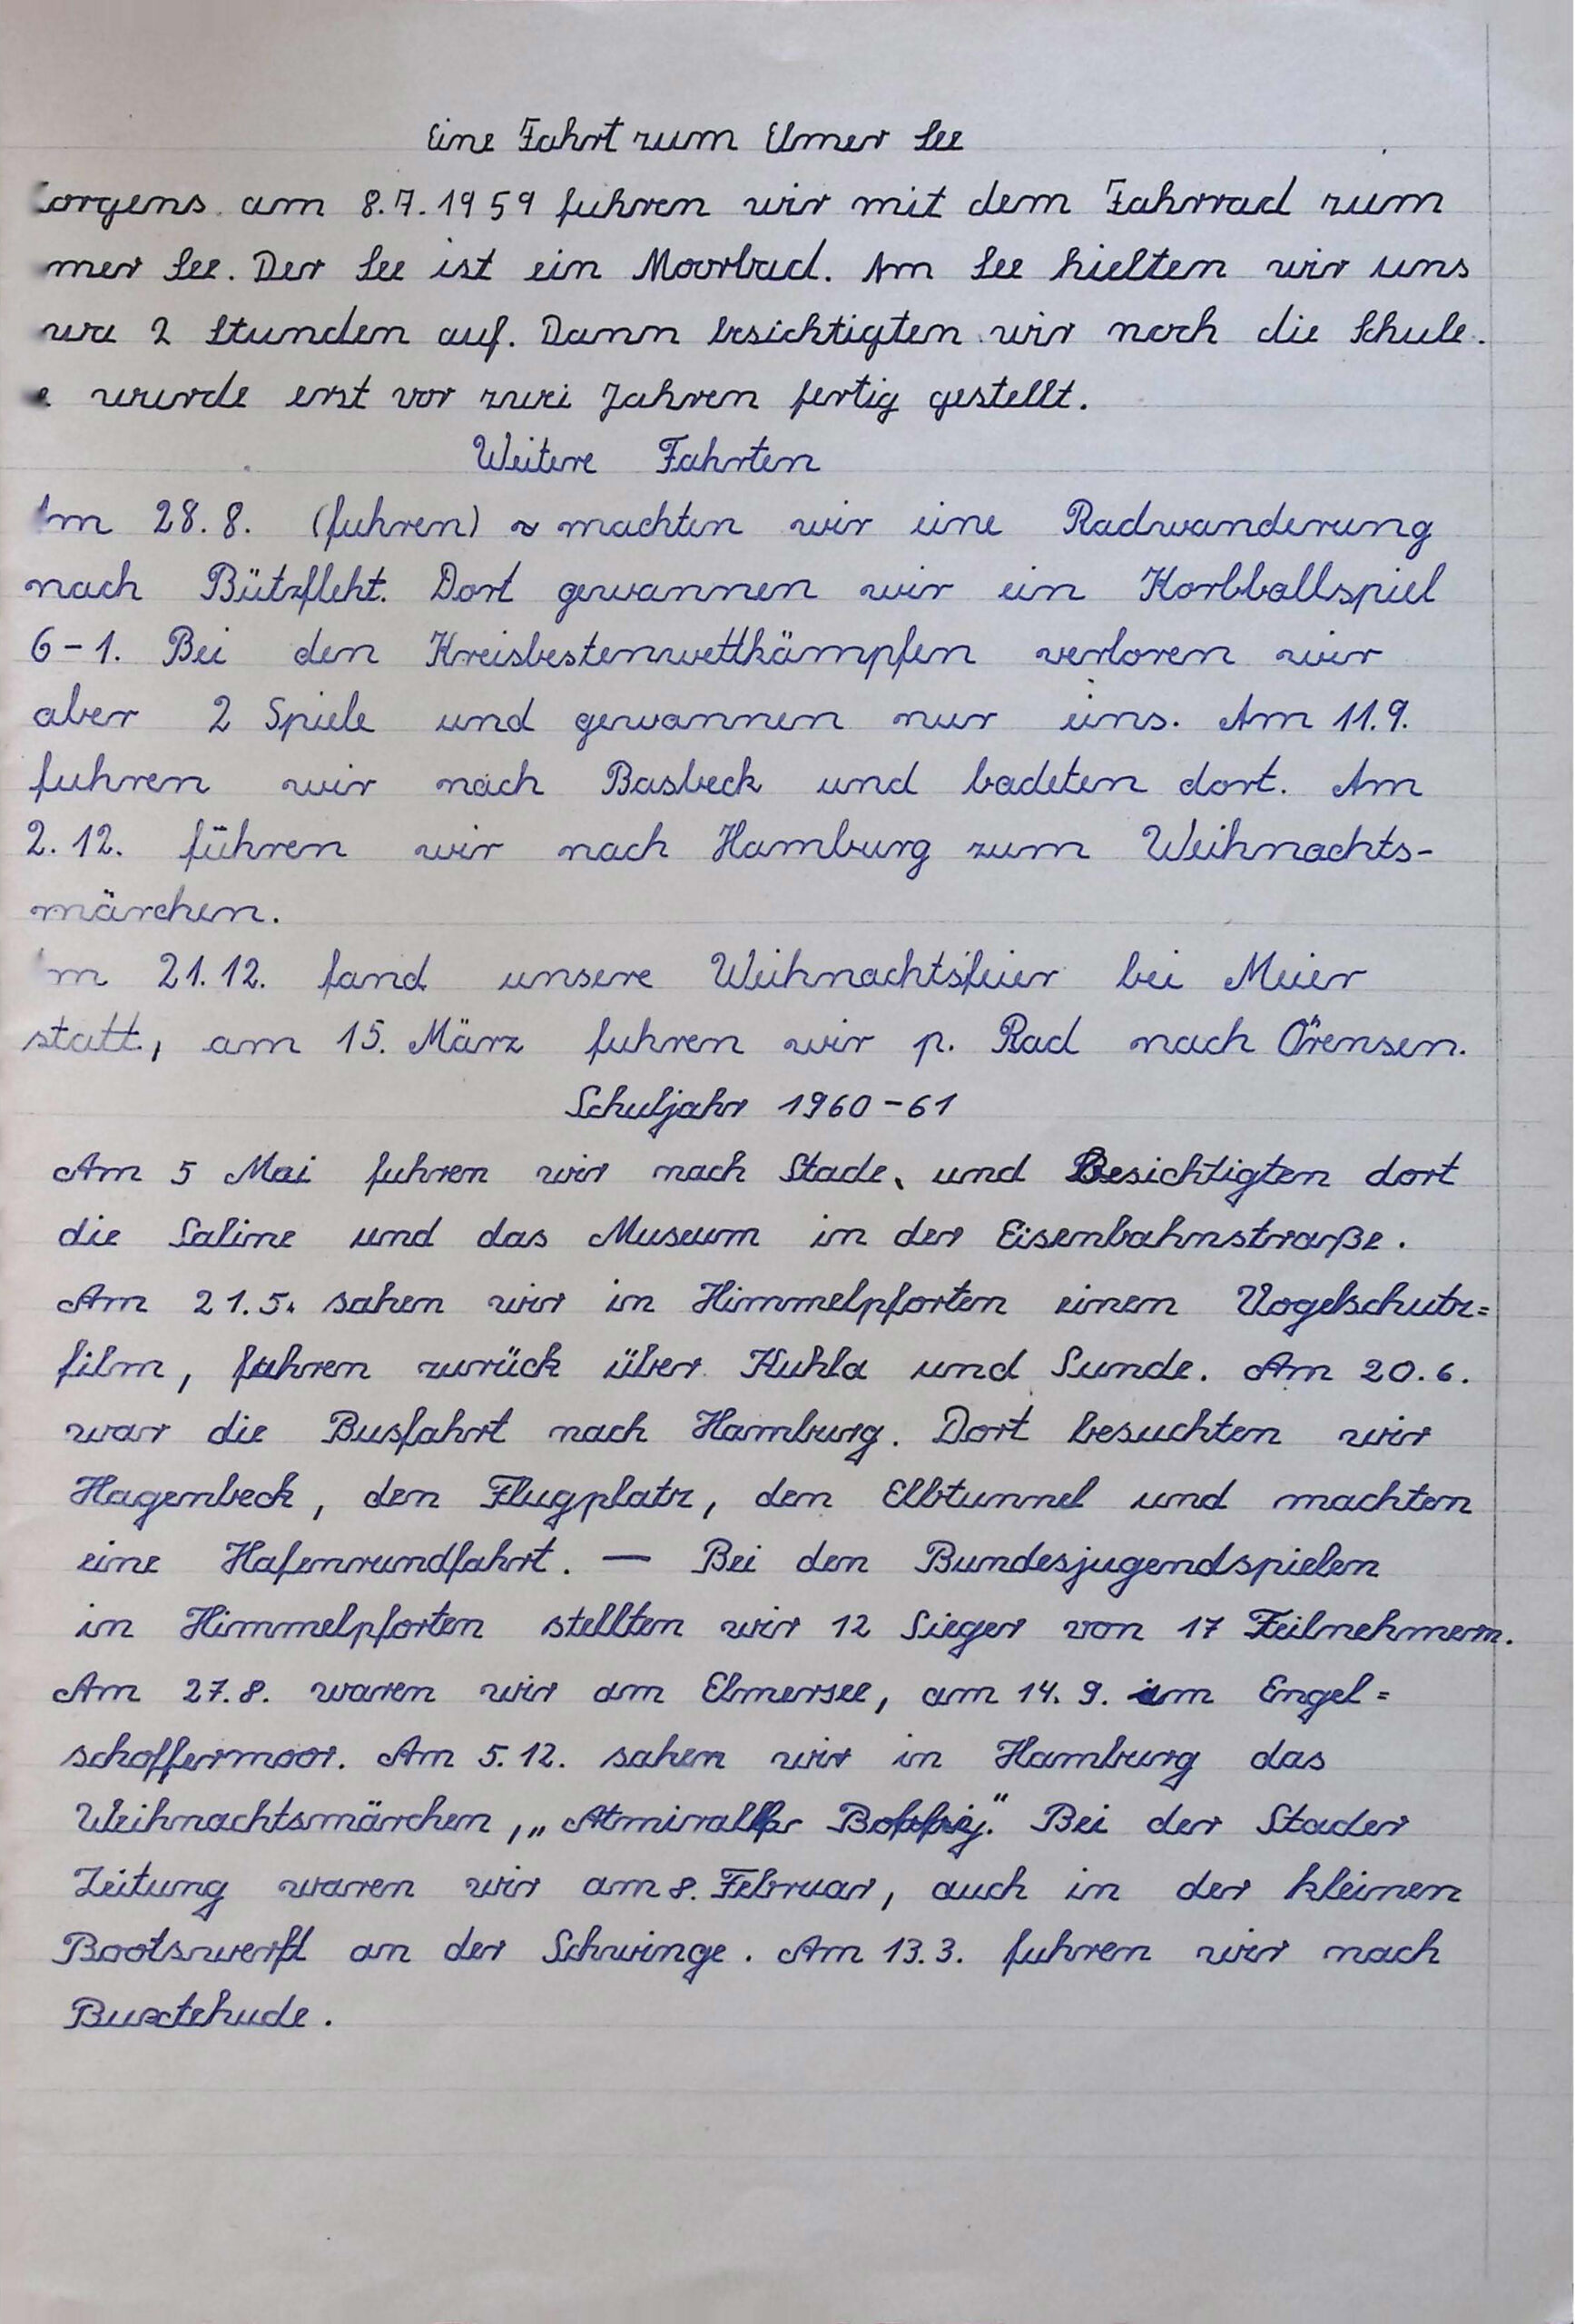 Eine Fahrt zum Elmer See
orgens am 8.7.1959 fuhren wir mit dem Fahrrad zum
mer See. Der See ist ein Moorbad. Am See hielten wir uns
wa 2 Stunden auf. Dann besichtigten wir noch die Schule.
e wurde erst vor zwei Jahren fertig gestellt.
Weitere Fahrten
Am 28.8. (fuhren) machten wir eine Radwanderung
nach Bützfleht. Dort gewannen wir ein Korbballspiel
6-1. Bei den Kreisbestenwettkämpfen verloren wir
aber 2 Spiele und gewannen nur eins. Am 11.9.
fuhren wir nach Basbeck und badeten dort. Am
2.12. führen wir nach Hamburg zum Weihnachts-
märchen.
m 21.12. fand unsere Weihnachtsfeier bei Meier
statt, am 15. März fuhren wir p. Rad nach Örensen.
Schuljahr 1960-61
Am 5 Mai fuhren wir nach Stade, und Besichtigten dort
die Saline und das Museum in der Eisenbahnstraße.
Am 21.5. sahen wir in Himmelpforten einen Vogelschutz=
film, fuhren zurück über Kuhla und Sunde. Am 20.6.
war die Busfahrt nach Hamburg. Dort besuchten wir
Hagenbeck, den Flugplatz, den Elbtunnel und machten
eine Hafenrundfahrt. — Bei den Bundesjugendspielen
in Himmelpforten stellten wir 12 Sieger von 17 Teilnehmern.
Am 27.8. waren wir am Elmersee, am 14.9. im Engel=
schoffermoor. Am 5.12. sahen wir in Hamburg das
Weihnachtsmärchen, „ Bei der Stader
Zeitung waren wir am 8. Februar, auch in der kleinen
Bootswerft an der Schwinge. Am 13.3. fuhren wir nach
Buxtehude.